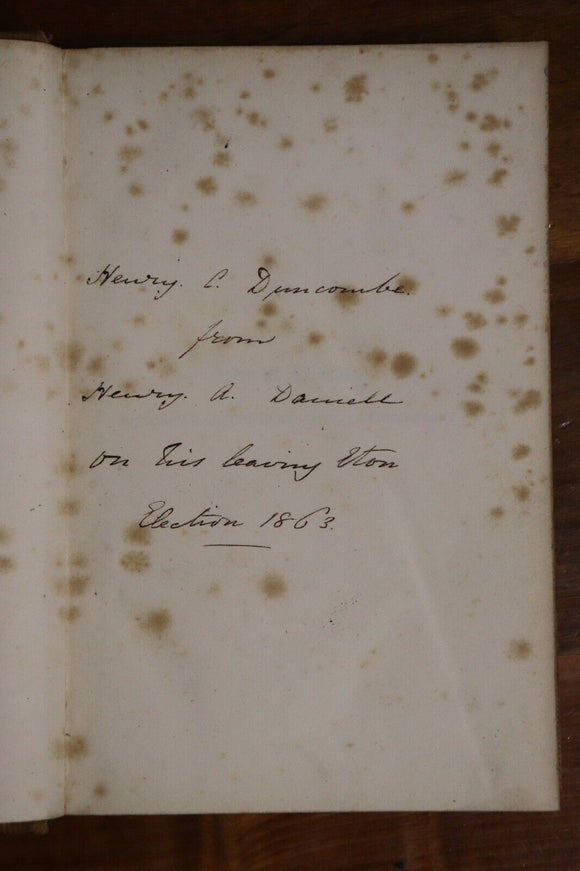 Henry. C. Duncombe.
from
Henry. A. Daniell
on his leaving Eton
Election 1863.